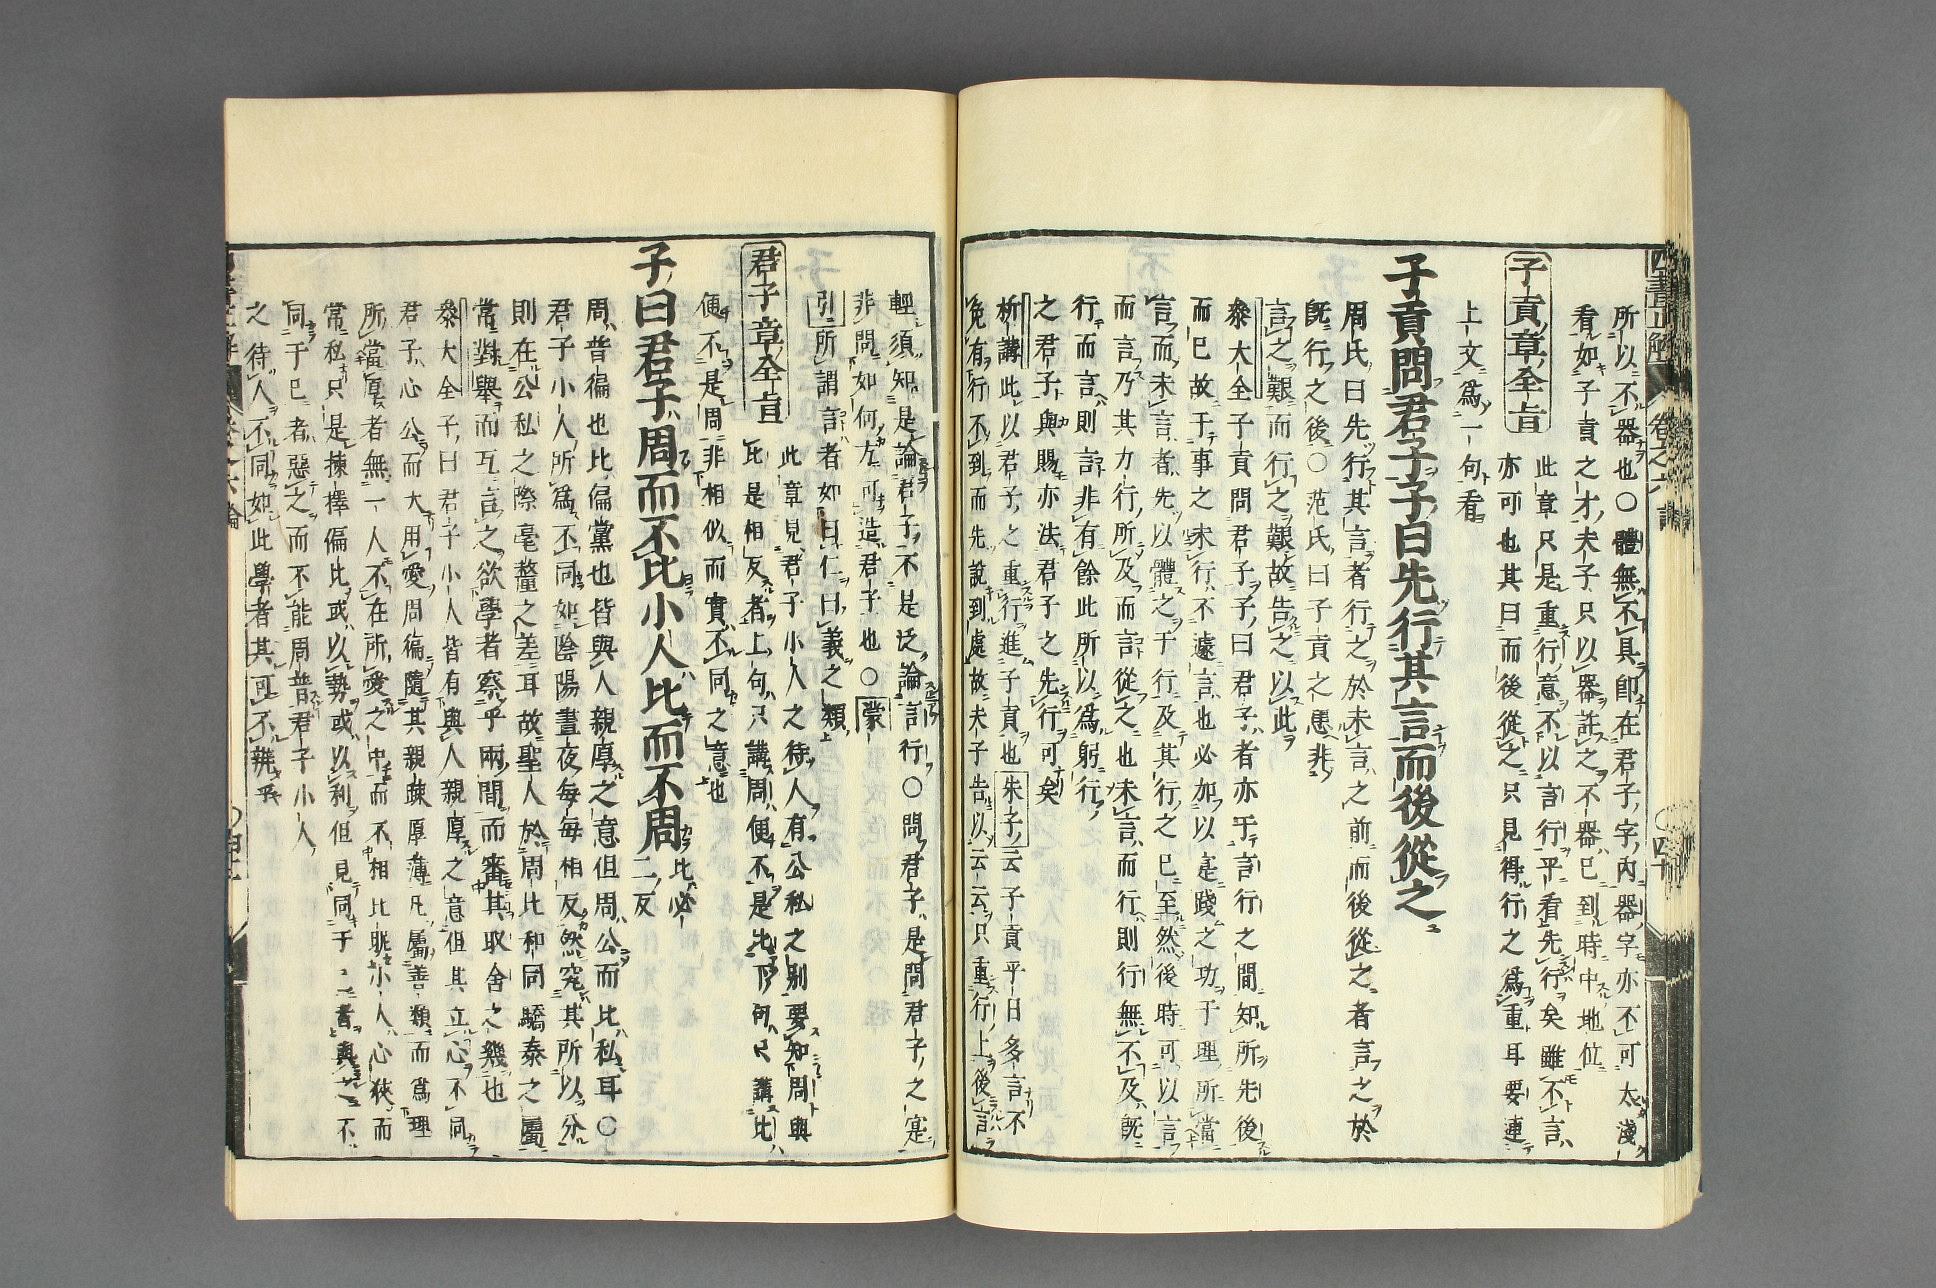 所以不器也〇體無不具卽在君子字內器字亦不可太淺
看如子貢之才夫子只以器許之不器已到時中地位
子貢章全旨
此章只是重行意不以言行平看先行矣雖不言
亦可也其曰而後從之只見得行之爲重耳要連
上文爲一句看
子貢問君子子曰先行其言而後從之
周氏曰先行其言者行之於未言之前而後從之者言之於
旣行之後〇范氏曰子貢之患非
言之艱而行之艱故告之以此
叅大全子貢問君子子曰君子者亦于言行之間知所先後
而已故于事之未行不遽言也必加以寔踐之功于理所當
言而未言者先以體之于行及其行之已至然後時可以言
而言乃其力行所及而言從之也未言而行則行無不及旣
行而言則言非有餘此所以爲躬行
之君子與賜亦法君子之先行可矣
析講此以君子之重行進子貢也朱子云子貢平日多言不
免有行不到而先說到處故夫子告以云云只重行上後言
輕須知是論君子不是泛論言行〇問君子是問君子之寔
非問如何方可造君子也〇蒙
引所謂言者如曰仁曰義之類
君子章全旨
此章見君子小人之待人有公私之別要知周與
比是相反者上句只講周便不是比下句只講比
便不是周非相似而實不同之意也
子曰君子周而不比小人比而不周
比必
二反
周普徧也比偏黨也皆與人親厚之意但周公而比私耳〇
君子小人所爲不同如陰陽晝夜每每相反然究其所以分
則在公私之際毫釐之差耳故聖人於周比和同驕泰之屬
常對舉而互言之欲學者察乎兩間而審其取舍之幾也
叅大全子曰君子小人皆有與人親厚之意但其立心不同
君子心公而大用愛周徧隨其親疎厚薄凡屬善類而爲理
所當厚者無一人不在所愛之中而不相比昵小人心狹而
常私只是揀擇偏比或以勢或以利但見同于己者與之不
同于己者惡之而不能周普君子小人
之待人不同如此學者其可不辨乎
四書正解 卷之六 論 四十